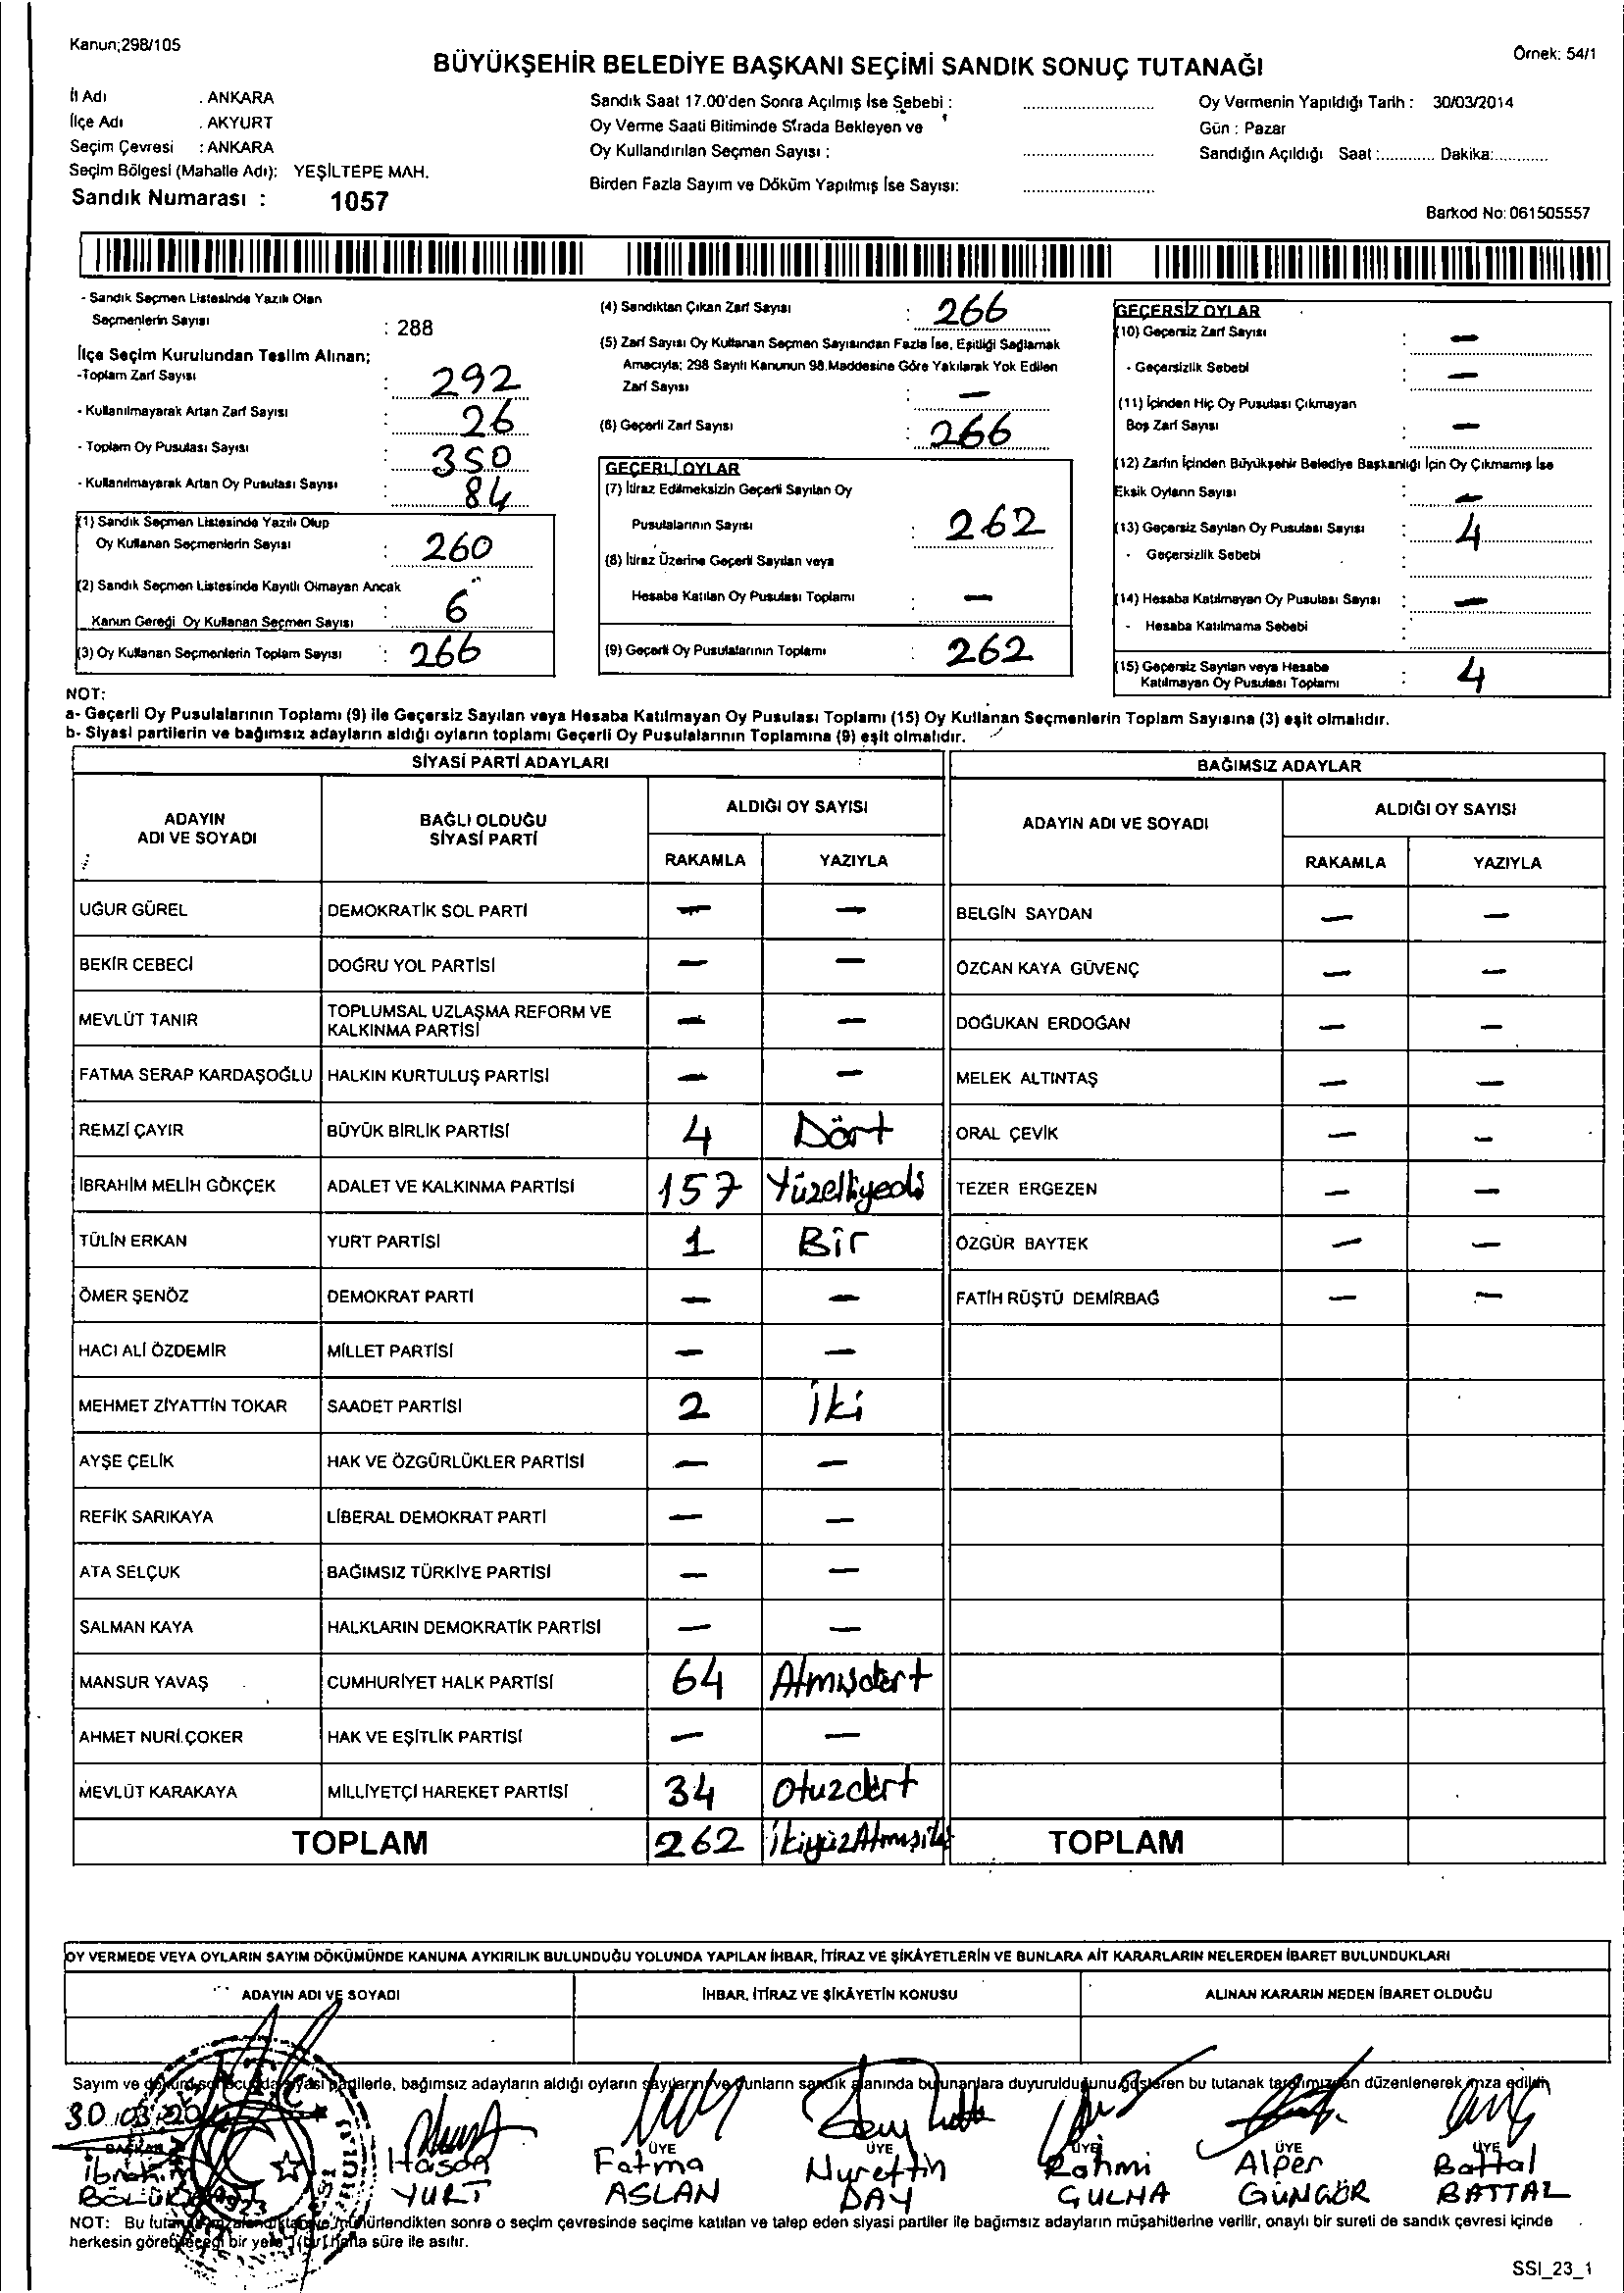 Kanun;298/105
Örnek: 54/1
BÜYÜKŞEHİR BELEDİYE BAŞKANI SEÇİMİ SANDIK SONUÇ TUTANAĞI
İl Adı : ANKARA
İlçe Adı : AKYURT
Seçim Çevresi : ANKARA
Seçim Bölgesi (Mahalle Adı): YEŞİLTEPE MAH.
Sandık Numarası : 1057
Sandık Saat 17.00'den Sonra Açılmış İse Sebebi :
Oy Verme Saati Bitiminde Sırada Bekleyen ve
Oy Kullandırılan Seçmen Sayısı :
Birden Fazla Sayım ve Döküm Yapılmış İse Sayısı:
Oy Vermenin Yapıldığı Tarih : 30/03/2014
Gün : Pazar
Sandığın Açıldığı Saat :............ Dakika:............
Barkod No: 061505557
- Sandık Seçmen Listesinde Yazılı Olan
Seçmenlerin Sayısı : 288
İlçe Seçim Kurulundan Teslim Alınan;
-Toplam Zarf Sayısı : 292
- Kullanılmayarak Artan Zarf Sayısı : 26
- Toplam Oy Pusulası Sayısı : 350
- Kullanılmayarak Artan Oy Pusulası Sayısı : 84
(1) Sandık Seçmen Listesinde Yazılı Olup
Oy Kullanan Seçmenlerin Sayısı : 260
(2) Sandık Seçmen Listesinde Kayıtlı Olmayan Ancak
Kanun Gereği Oy Kullanan Seçmen Sayısı : 6
(3) Oy Kullanan Seçmenlerin Toplam Sayısı : 266
(4) Sandıktan Çıkan Zarf Sayısı : 266
(5) Zarf Sayısı Oy Kullanan Seçmen Sayısından Fazla İse, Eşitliği Sağlamak
Amacıyla; 298 Sayılı Kanunun 98.Maddesine Göre Yakılarak Yok Edilen
Zarf Sayısı : -
(6) Geçerli Zarf Sayısı : 266
GEÇERLİ OYLAR
(7) İtiraz Edilmeksizin Geçerli Sayılan Oy
Pusulalarının Sayısı : 262
(8) İtiraz Üzerine Geçerli Sayılan veya
Hesaba Katılan Oy Pusulası Toplamı : -
(9) Geçerli Oy Pusulalarının Toplamı : 262
GEÇERSİZ OYLAR
(10) Geçersiz Zarf Sayısı : -
- Geçersizlik Sebebi : -
(11) İçinden Hiç Oy Pusulası Çıkmayan
Boş Zarf Sayısı : -
(12) Zarfın İçinden Büyükşehir Belediye Başkanlığı İçin Oy Çıkmamış İse
Eksik Oyların Sayısı : -
(13) Geçersiz Sayılan Oy Pusulası Sayısı : 4
- Geçersizlik Sebebi :
(14) Hesaba Katılmayan Oy Pusulası Sayısı : -
- Hesaba Katılmama Sebebi :
(15) Geçersiz Sayılan veya Hesaba
Katılmayan Oy Pusulası Toplamı : 4
NOT:
a- Geçerli Oy Pusulalarının Toplamı (9) ile Geçersiz Sayılan veya Hesaba Katılmayan Oy Pusulası Toplamı (15) Oy Kullanan Seçmenlerin Toplam Sayısına (3) eşit olmalıdır.
b- Siyasi partilerin ve bağımsız adayların aldığı oyların toplamı Geçerli Oy Pusulalarının Toplamına (9) eşit olmalıdır.
SİYASİ PARTİ ADAYLARI
ADAYIN ADI VE SOYADI BAĞLI OLDUĞU SİYASİ PARTİ ALDIĞI OY SAYISI
RAKAMLA YAZIYLA
UĞUR GÜREL DEMOKRATİK SOL PARTİ - -
BEKİR CEBECİ DOĞRU YOL PARTİSİ - -
MEVLÜT TANIR TOPLUMSAL UZLAŞMA REFORM VE
KALKINMA PARTİSİ - -
FATMA SERAP KARDAŞOĞLU HALKIN KURTULUŞ PARTİSİ - -
REMZİ ÇAYIR BÜYÜK BİRLİK PARTİSİ 4 Dört
İBRAHİM MELİH GÖKÇEK ADALET VE KALKINMA PARTİSİ 157 Yüzelliyedi
TÜLİN ERKAN YURT PARTİSİ 1 Bir
ÖMER ŞENÖZ DEMOKRAT PARTİ - -
HACI ALİ ÖZDEMİR MİLLET PARTİSİ - -
MEHMET ZİYATTİN TOKAR SAADET PARTİSİ 2 İki
AYŞE ÇELİK HAK VE ÖZGÜRLÜKLER PARTİSİ - -
REFİK SARIKAYA LİBERAL DEMOKRAT PARTİ - -
ATA SELÇUK BAĞIMSIZ TÜRKİYE PARTİSİ - -
SALMAN KAYA HALKLARIN DEMOKRATİK PARTİSİ - -
MANSUR YAVAŞ CUMHURİYET HALK PARTİSİ 64 Atmışdört
AHMET NURİ ÇOKER HAK VE EŞİTLİK PARTİSİ - -
MEVLÜT KARAKAYA MİLLİYETÇİ HAREKET PARTİSİ 34 Otuzdört
TOPLAM 262 İkiyüzAtmışiki
BAĞIMSIZ ADAYLAR
ADAYIN ADI VE SOYADI ALDIĞI OY SAYISI
RAKAMLA YAZIYLA
BELGİN SAYDAN - -
ÖZCAN KAYA GÜVENÇ - -
DOĞUKAN ERDOĞAN - -
MELEK ALTINTAŞ - -
ORAL ÇEVİK - -
TEZER ERGEZEN - -
ÖZGÜR BAYTEK - -
FATİH RÜŞTÜ DEMİRBAĞ - -
TOPLAM
OY VERMEDE VEYA OYLARIN SAYIM DÖKÜMÜNDE KANUNA AYKIRILIK BULUNDUĞU YOLUNDA YAPILAN İHBAR, İTİRAZ VE ŞİKÂYETLERİN VE BUNLARA AİT KARARLARIN NELERDEN İBARET BULUNDUKLARI
ADAYIN ADI VE SOYADI İHBAR, İTİRAZ VE ŞİKÂYETİN KONUSU ALINAN KARARIN NEDEN İBARET OLDUĞU
Sayım ve döküm sonucunda siyasi partilerle, bağımsız adayların aldığı oyların sayılarını ve bunların sandık alanında bulunanlara duyurulduğunu gösteren bu tutanak tarafımızdan düzenlenerek imza edildi.
BAŞKAN ÜYE ÜYE ÜYE ÜYE ÜYE
İbrahim Hasan Fatma Nurettin Rahmi Alper Battal
YURT ASLAN DAY GULHA GÜNGÖR BATTAL
NOT: Bu tutanak sonra o seçim çevresinde seçime katılan ve talep eden siyasi partiler ile bağımsız adayların müşahitlerine verilir, onaylı bir sureti de sandık çevresi içinde
herkesin görebileceği bir yere 1(bir) hafta süre ile asılır.
SSI_23_1